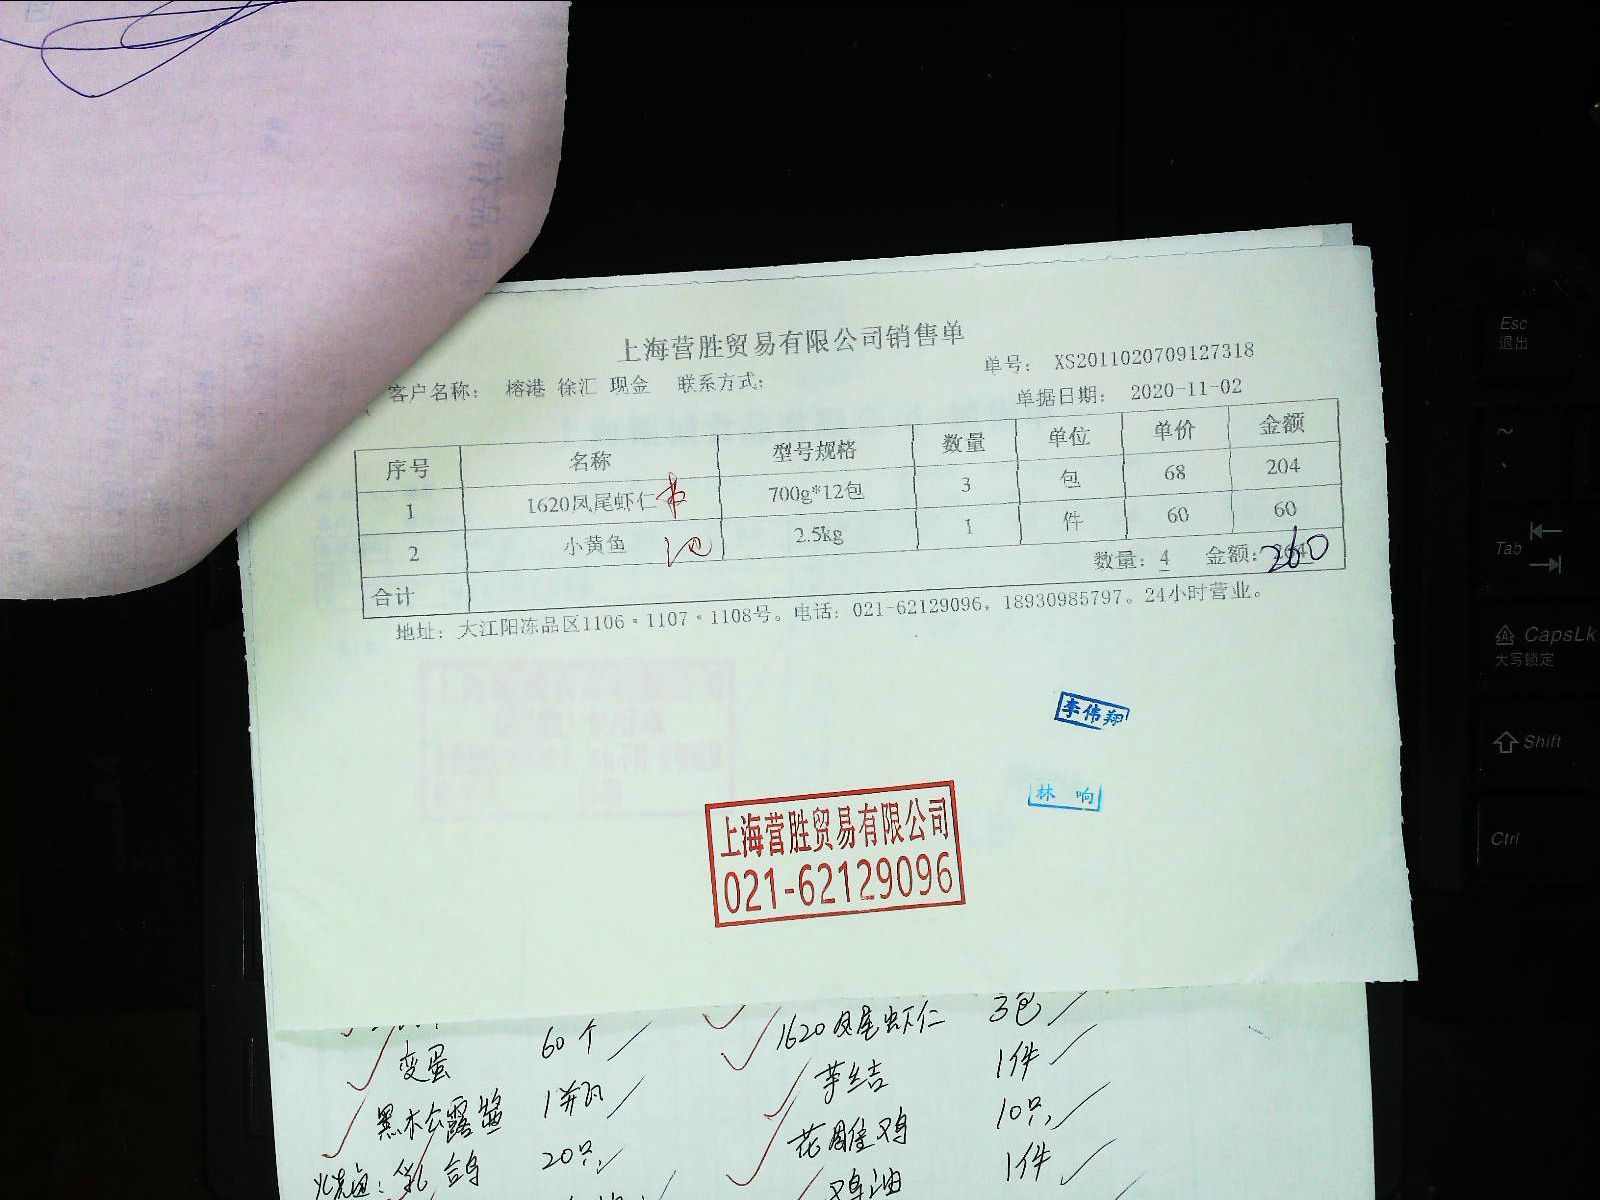 上海营胜贸易有限公司销售单
单号: XS2011020709127318
客户名称: 榕港 徐汇 现金 联系方式:
单据日期: 2020-11-02
序号 名称 型号规格 数量 单位 单价 金额
1 1620凤尾虾仁 700g*12包 3 包 68 204
2 小黄鱼 2.5kg 1 件 60 60
合计 数量: 4 金额: 260
地址: 大江阳冻品区1106·1107·1108号。电话: 021-62129096, 18930985797。24小时营业。
李伟翔
林 响
上海营胜贸易有限公司
021-62129096
变蛋 60个
1620凤尾虾仁 3包
1件
20只
10只
鸡油 1件
Esc
退出
~
Tab
CapsLk
大写锁定
Shift
Ctrl